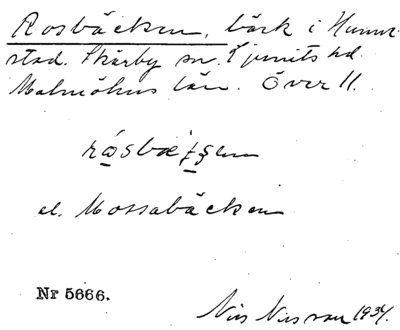 Rosbäcken, bäck i Hunne-
stad. Skårby sn. Ljunits hd.
Malmöhus län. Över 11.
råsbæꞥen
el. Mossabäcken
Nr 5666.
Nils Nilsson 1934.